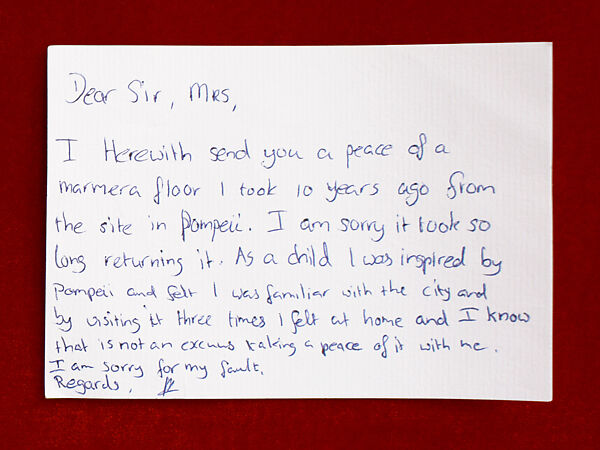 Dear Sir, Mrs,
I Herewith send you a peace of a
marmera floor I took 10 years ago from
the site in Pompeii. I am sorry it took so
long returning it. As a child I was inspired by
Pompeii and felt I was familiar with the city and
by visiting it three times I felt at home and I know
that is not an excuus taking a peace of it with me.
I am sorry for my fault.
Regards,